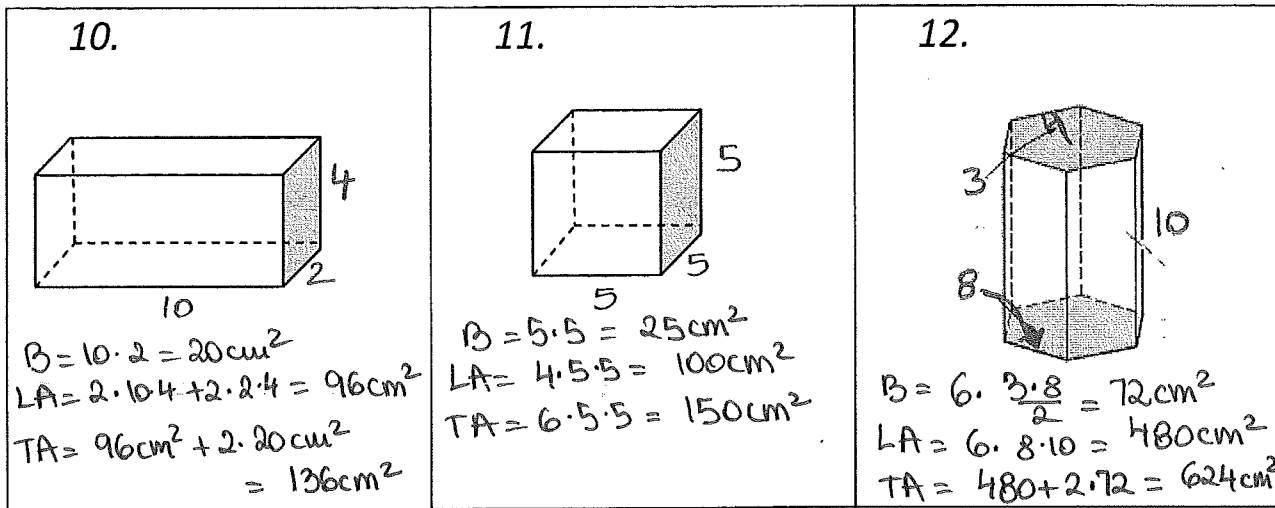 10.
4
2
10
B = 10·2 = 20cm²
LA = 2·10·4 + 2·2·4 = 96cm²
TA = 96cm² + 2·20cm²
= 136cm²
11.
5
5
5
B = 5·5 = 25cm²
LA = 4·5·5 = 100cm²
TA = 6·5·5 = 150cm²
12.
3
10
8
B = 6· 3·8/2 = 72cm²
LA = 6·8·10 = 480cm²
TA = 480+2·72 = 624cm²